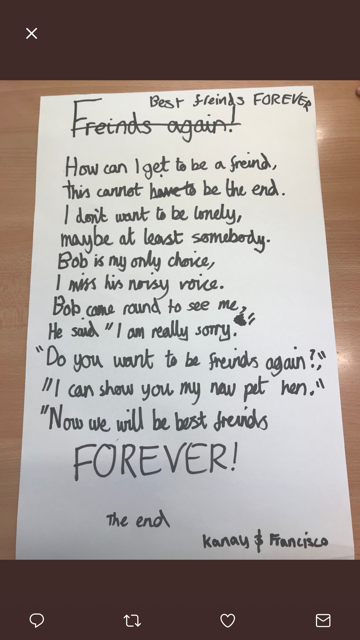 Best freinds FOREVER
Freinds again!
How can I get to be a freind,
this cannot have to be the end.
I don't want to be lonely,
maybe at least somebody.
Bob is my only choice,
I miss his noisy voice.
Bob came round to see me,
He said "I am really sorry.
"Do you want to be freinds again?",
"I can show you my new pet hen."
"Now we will be best freinds
FOREVER!
The end
Kanay & Francisco